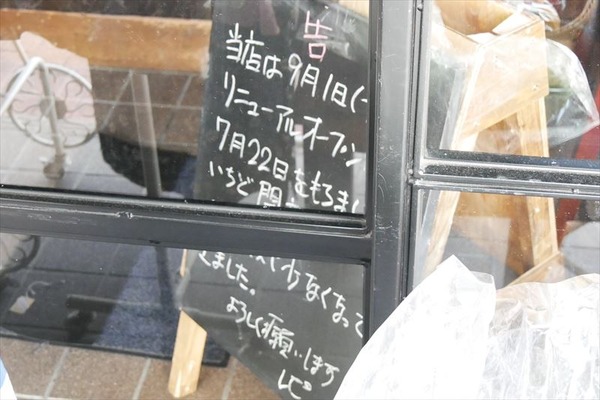 告
当店は9月1日(
リニューアルオープン
7月22日をもちまし
いちど閉
少なくなって
きました。
よろしく願いします